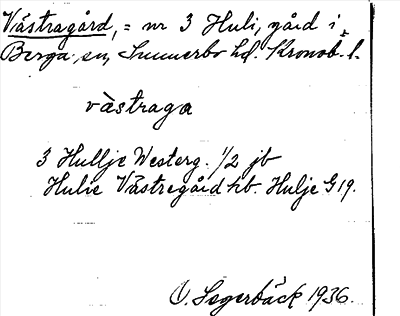 Västragård, = nr 3 Huli, gård i
Berga sn, Sunnerbo hd. Kronob. l.
västraga
3 Hullje Westerg. 1/2 jb
Hulie Västregård hb. Hulje G 19.
O. Segerbäck 1936.